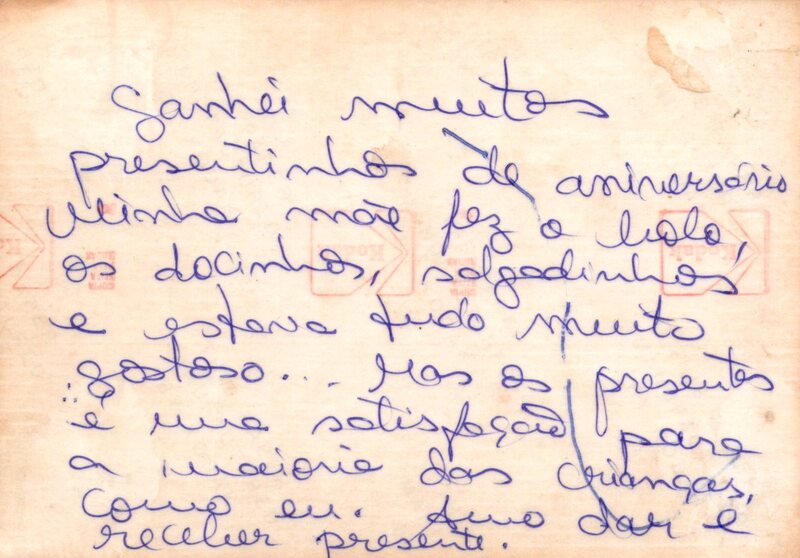 Ganhei muitos
presentinhos de aniversário
Minha mãe fez o bolo,
os docinhos, salgadinhos
e estava tudo muito
gostoso... Mas os presentes
é uma satisfação para
a maioria das crianças,
como eu. Amo dar e
receber presente.